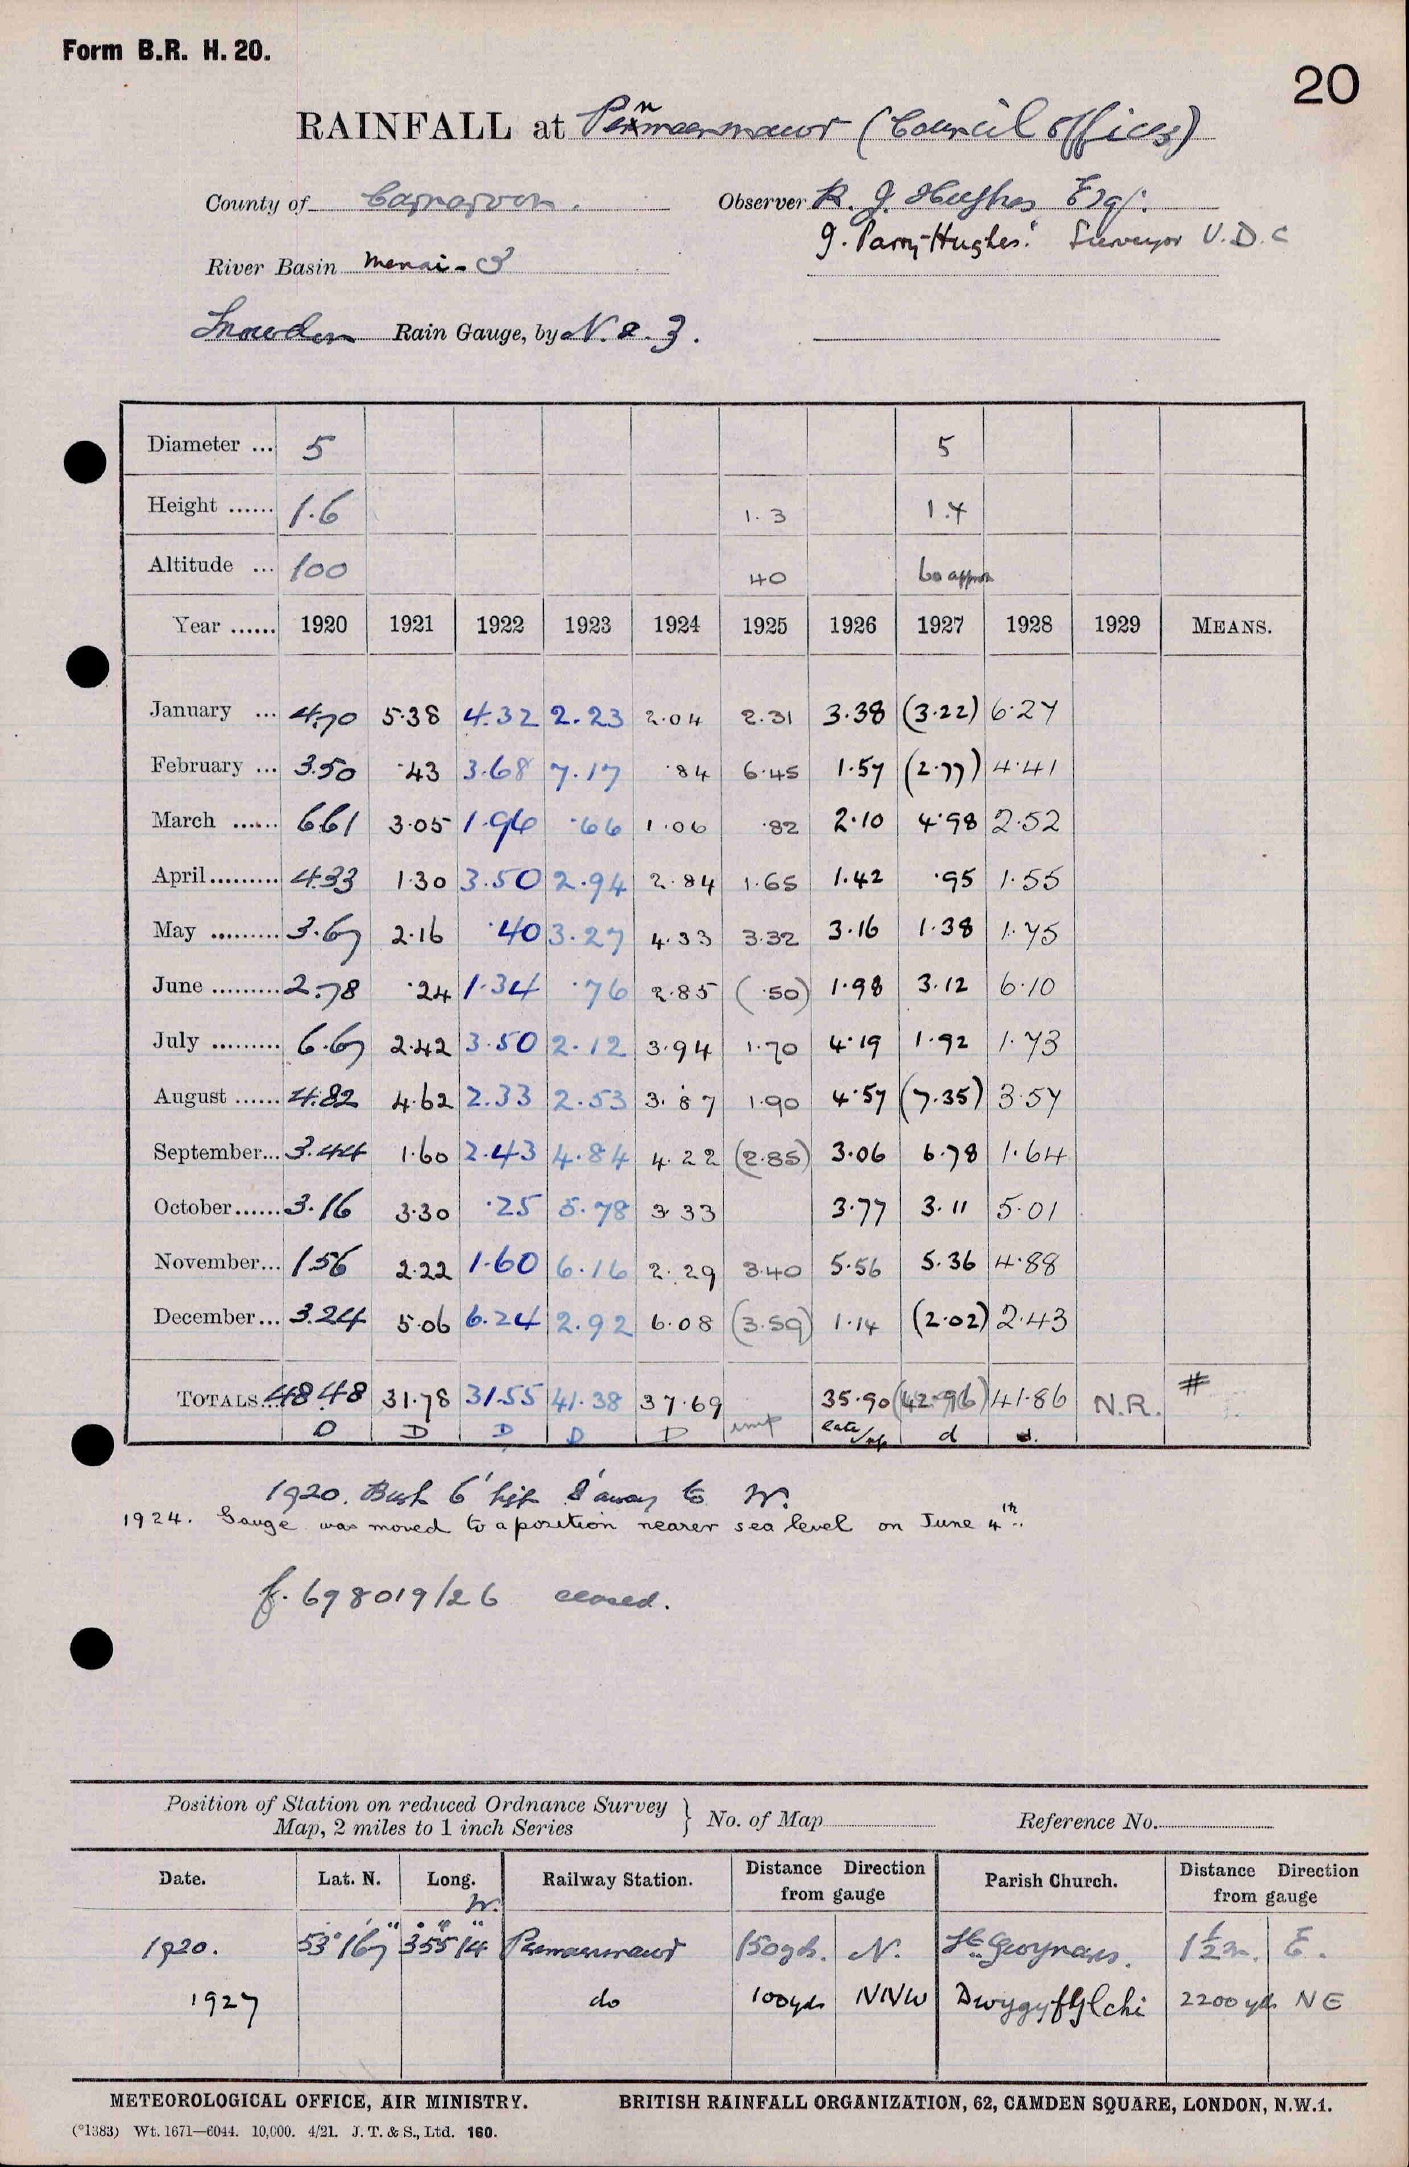 Form B.R. H. 20.
20
RAINFALL at Penmaenmawr (Council offices)
County of Carnarvon. Observer R. J. Hughes Esq.
J. Parry-Hughes. Surveyor U.D.C
River Basin Menai - 3
Snowdon Rain Gauge, by N. & Z.
Diameter ... 5 5
Height ...... 1.6 1.3 1.4
Altitude ... 100 40 60 approx
Year ...... 1920 1921 1922 1923 1924 1925 1926 1927 1928 1929 MEANS.
January ... 4.70 5.38 4.32 2.23 2.04 2.31 3.38 (3.22) 6.27
February ... 3.50 .43 3.68 7.17 .84 6.45 1.57 (2.77) 4.41
March ...... 6.61 3.05 1.96 .66 1.06 .82 2.10 4.98 2.52
April......... 4.33 1.30 3.50 2.94 2.84 1.65 1.42 .95 1.55
May ......... 3.67 2.16 .40 3.27 4.33 3.32 3.16 1.38 1.75
June ......... 2.78 .24 1.34 .76 2.85 (.50) 1.98 3.12 6.10
July ......... 6.67 2.42 3.50 2.12 3.94 1.70 4.19 1.92 1.73
August ...... 4.82 4.62 2.33 2.53 3.87 1.90 4.57 (7.35) 3.57
September... 3.44 1.60 2.43 4.84 4.22 (2.85) 3.06 6.78 1.64
October...... 3.16 3.30 .25 5.78 3.33 3.77 3.11 5.01
November... 1.56 2.22 1.60 6.16 2.29 3.40 5.56 5.36 4.88
December... 3.24 5.06 6.24 2.92 6.08 (3.59) 1.14 (2.02) 2.43
TOTALS... 48.48 31.78 31.55 41.38 37.69 35.90 (42.96) 41.86 N.R. #
D D D D D imp late d d.
1920. Bush 6' high 8' away to W.
1924. Gauge was moved to a position nearer sea level on June 4th.
f. 698019/26 closed.
Position of Station on reduced Ordnance Survey
Map, 2 miles to 1 inch Series } No. of Map Reference No.
Date. Lat. N. Long. W. Railway Station. Distance Direction from gauge Parish Church. Distance Direction from gauge
1920. 53° 16' 7" 3° 55' 14" Penmaenmawr 150 yds. N. St. Gwynans. 1½ m. E.
1927 do 100 yds NNW Dwygyfylchi 2200 yds NE
METEOROLOGICAL OFFICE, AIR MINISTRY. BRITISH RAINFALL ORGANIZATION, 62, CAMDEN SQUARE, LONDON, N.W.1.
(*1383) Wt. 1671—6044. 10,000. 4/21. J. T. & S., Ltd. 160.